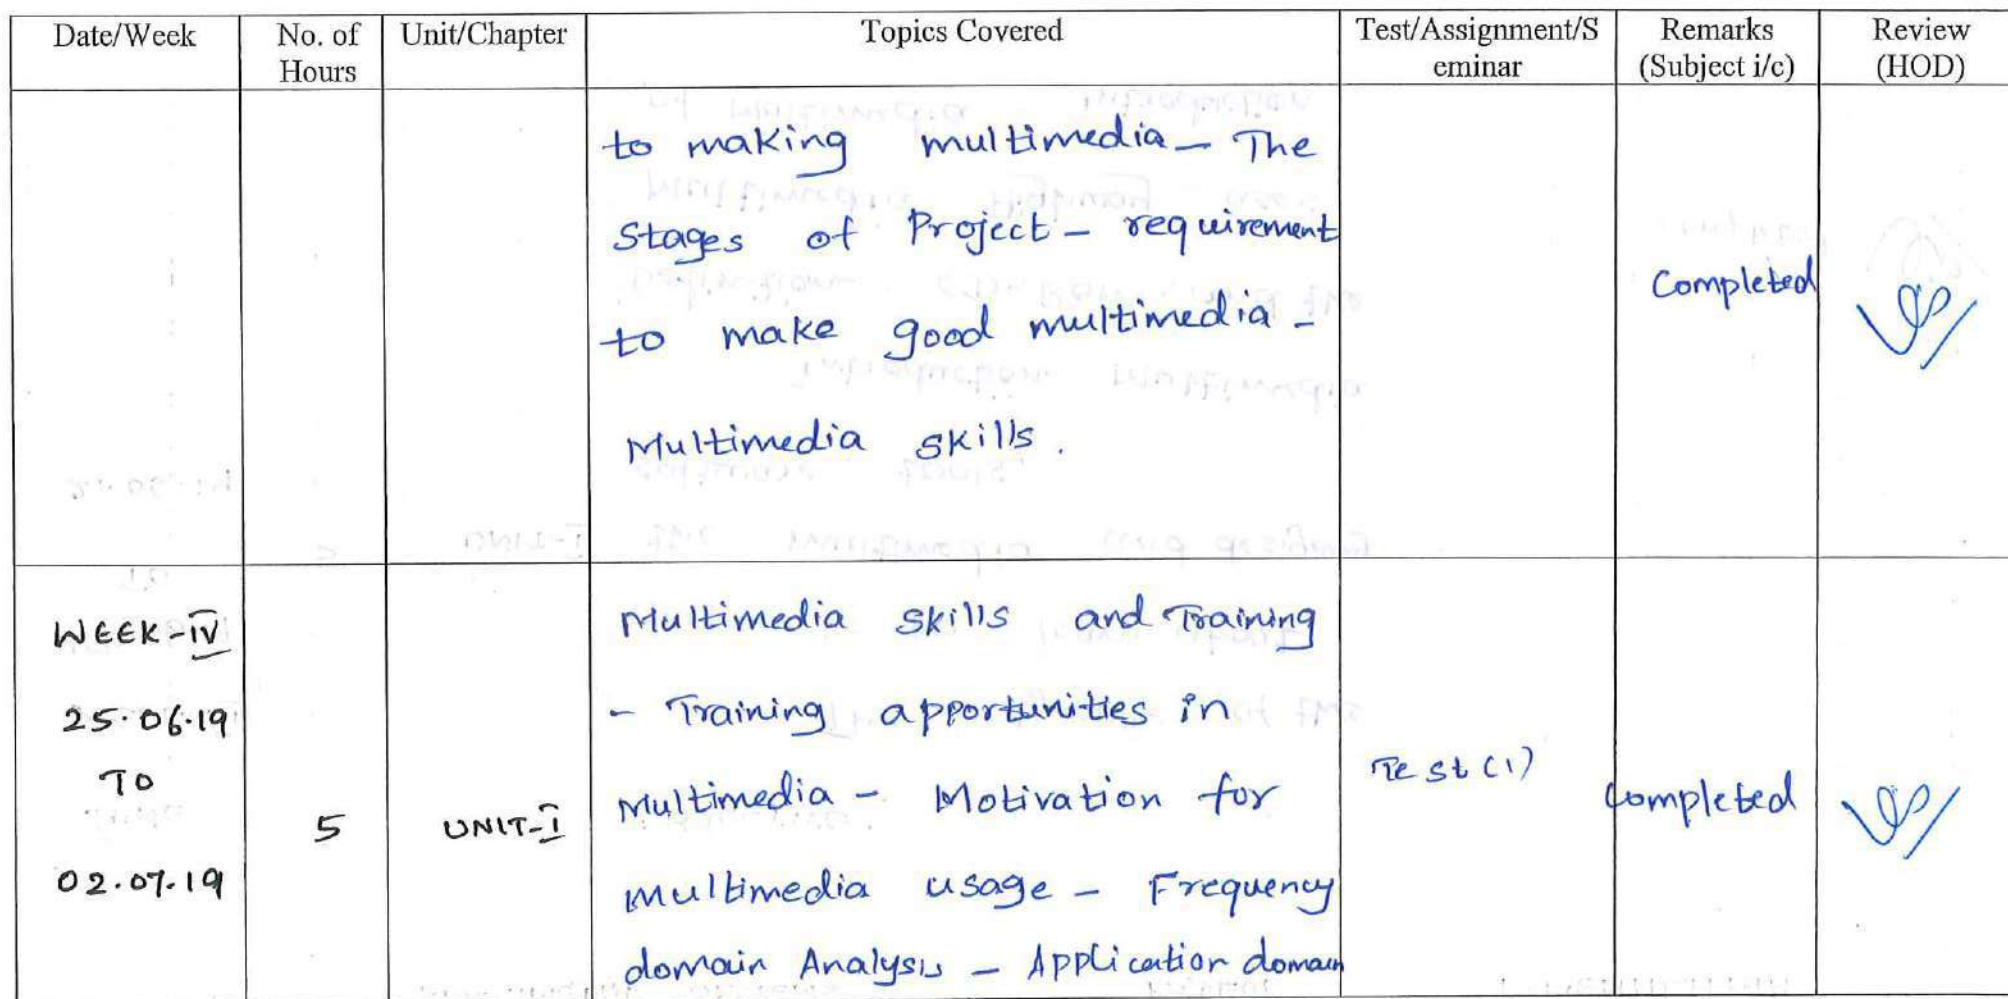 Date/Week No. of Hours Unit/Chapter Topics Covered Test/Assignment/S eminar Remarks (Subject i/c) Review (HOD)
to making multimedia - The
Stages of Project - requirement
Completed
to make good multimedia -
Multimedia skills.
WEEK-IV
25.06.19
TO
02.07.19
5
UNIT-I
Multimedia skills and Training
- Training apportunities in
Multimedia - Motivation for
multimedia usage - Frequency
domain Analysis - Application domain
Test (1)
Completed